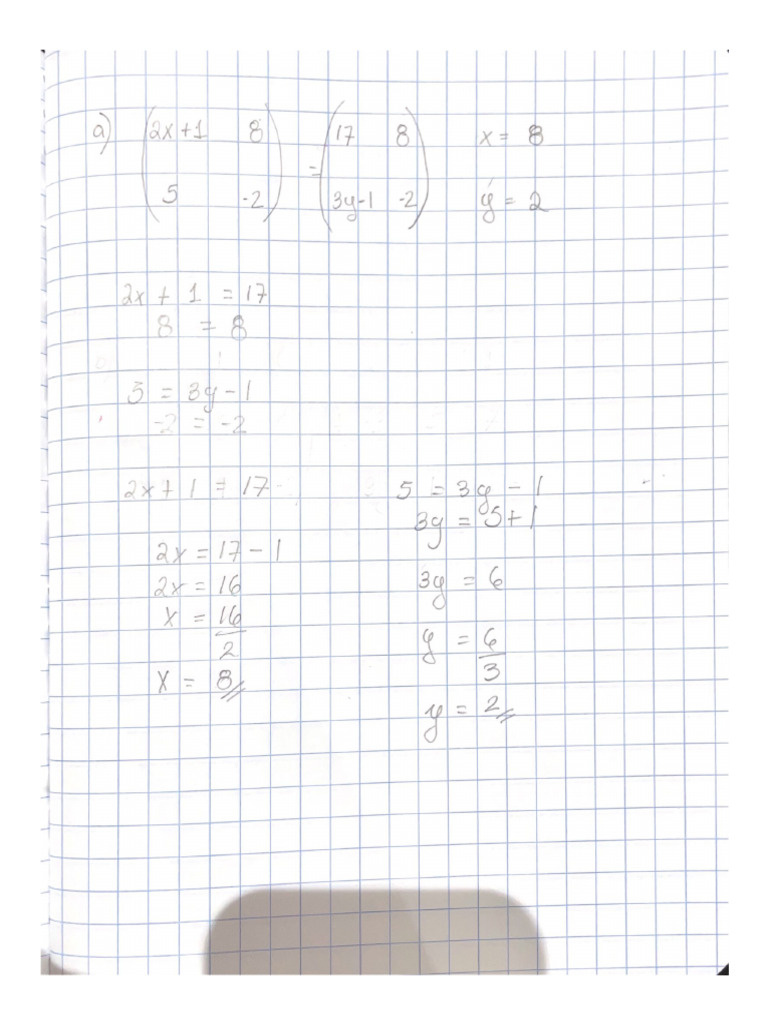 a) (2x+1 8) = (17 8) x = 8
(5 -2) (3y-1 -2) y = 2
2x + 1 = 17
8 = 8
5 = 3y - 1
-2 = -2
2x + 1 = 17
2x = 17 - 1
2x = 16
x = 16/2
x = 8
5 = 3y - 1
3y = 5+1
3y = 6
y = 6/3
y = 2